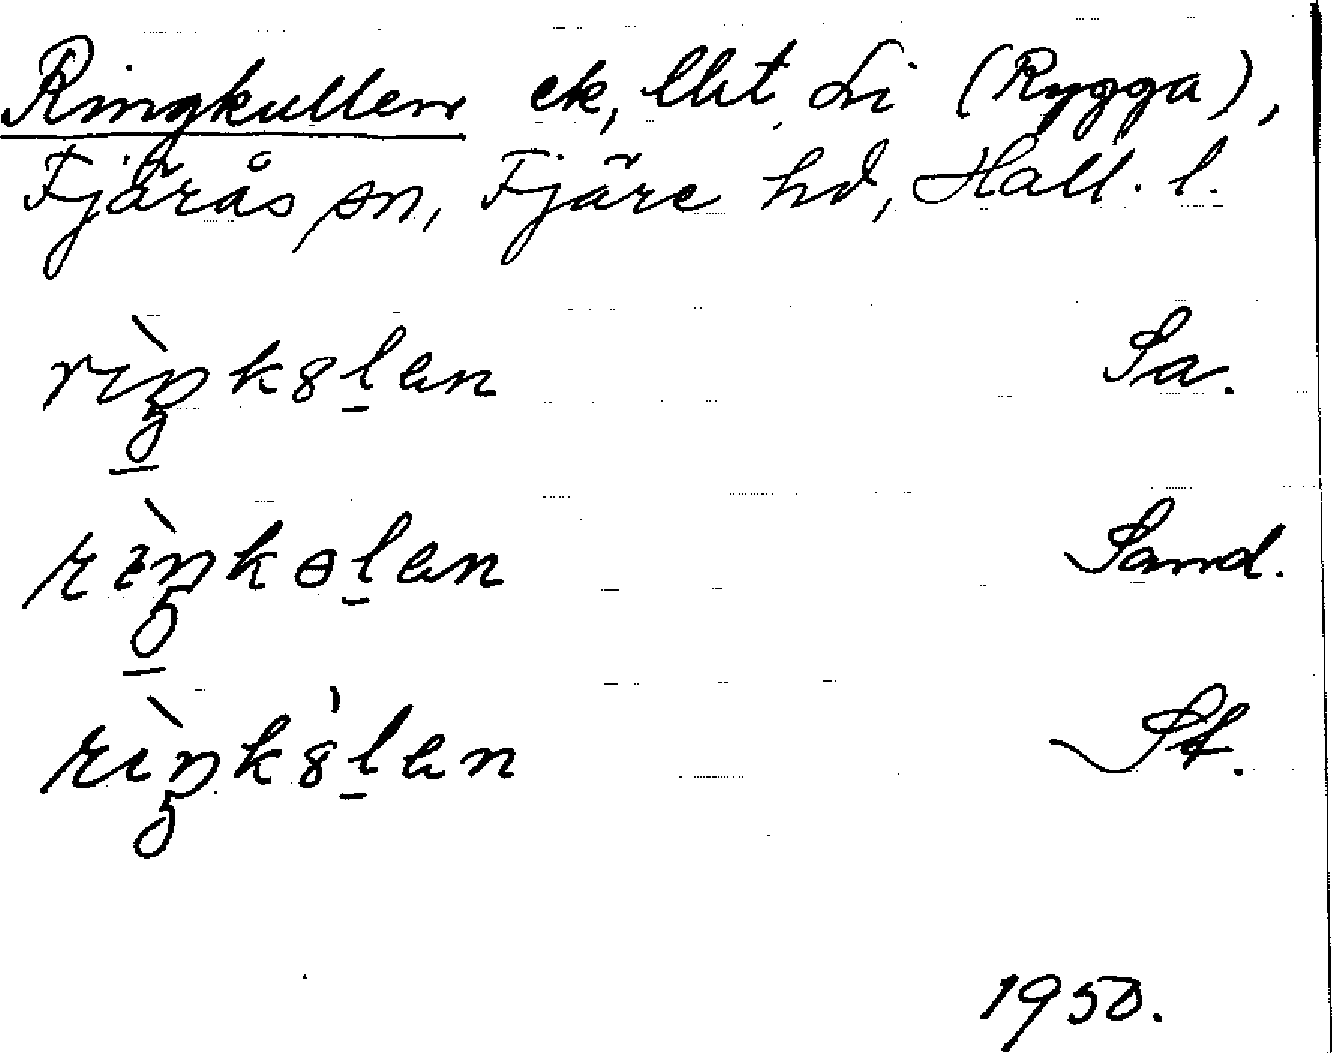 Ringkullen ek, lht, Li (Rygga),
Fjärås sn, Fjäre hd, Hall. l.
rìŋk8l̲en Sa.
rìŋkol̲en Sand.
rìŋk8̍l̲en St.
1950.